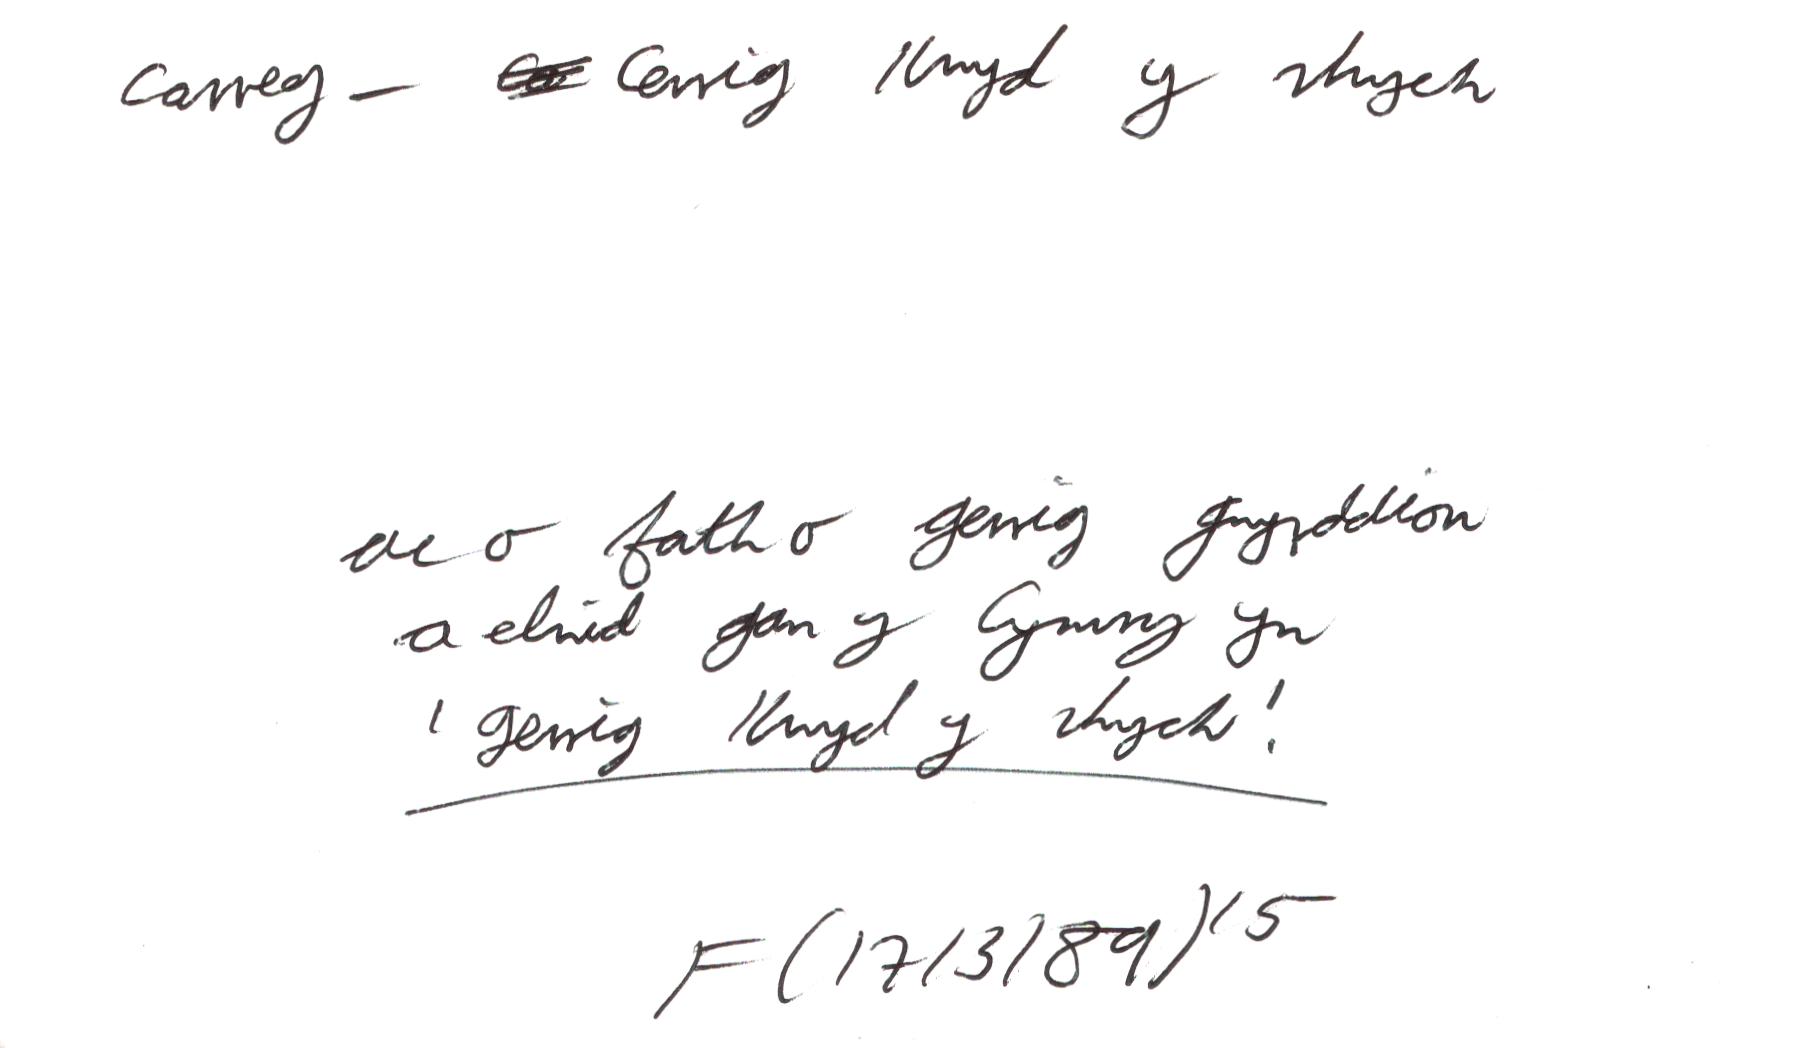 Carreg - Cerrig llwyd y rhych
ac o fath o gerrig gwyrddion
a elwid gan y Cymry yn
'gerrig llwyd y rhych'.
F(17/3/89)15